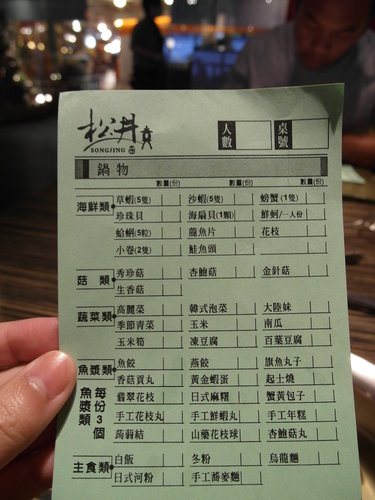 松井
SONGJING
人數
桌號
鍋物
數量(份) 數量(份) 數量(份)
海鮮類 草蝦(5隻) 沙蝦(5隻) 螃蟹(1隻)
珍珠貝 海扇貝(1顆) 鮮蚵/一人份
蛤蜊(5粒) 龍魚片 花枝
小卷(2隻) 鮭魚頭
菇類 秀珍菇 杏鮑菇 金針菇
生香菇
蔬菜類 高麗菜 韓式泡菜 大陸妹
季節青菜 玉米 南瓜
玉米筍 凍豆腐 百葉豆腐
魚漿類 魚餃 燕餃 旗魚丸子
香菇貢丸 黃金蝦蛋 起士燒
翡翠花枝 日式麻糬 蟹黃包子
手工花枝丸 手工鮮蝦丸 手工年糕
蒟蒻結 山藥花枝球 杏鮑菇丸
魚漿類每份3個
主食類 白飯 冬粉 烏龍麵
日式河粉 手工蕎麥麵